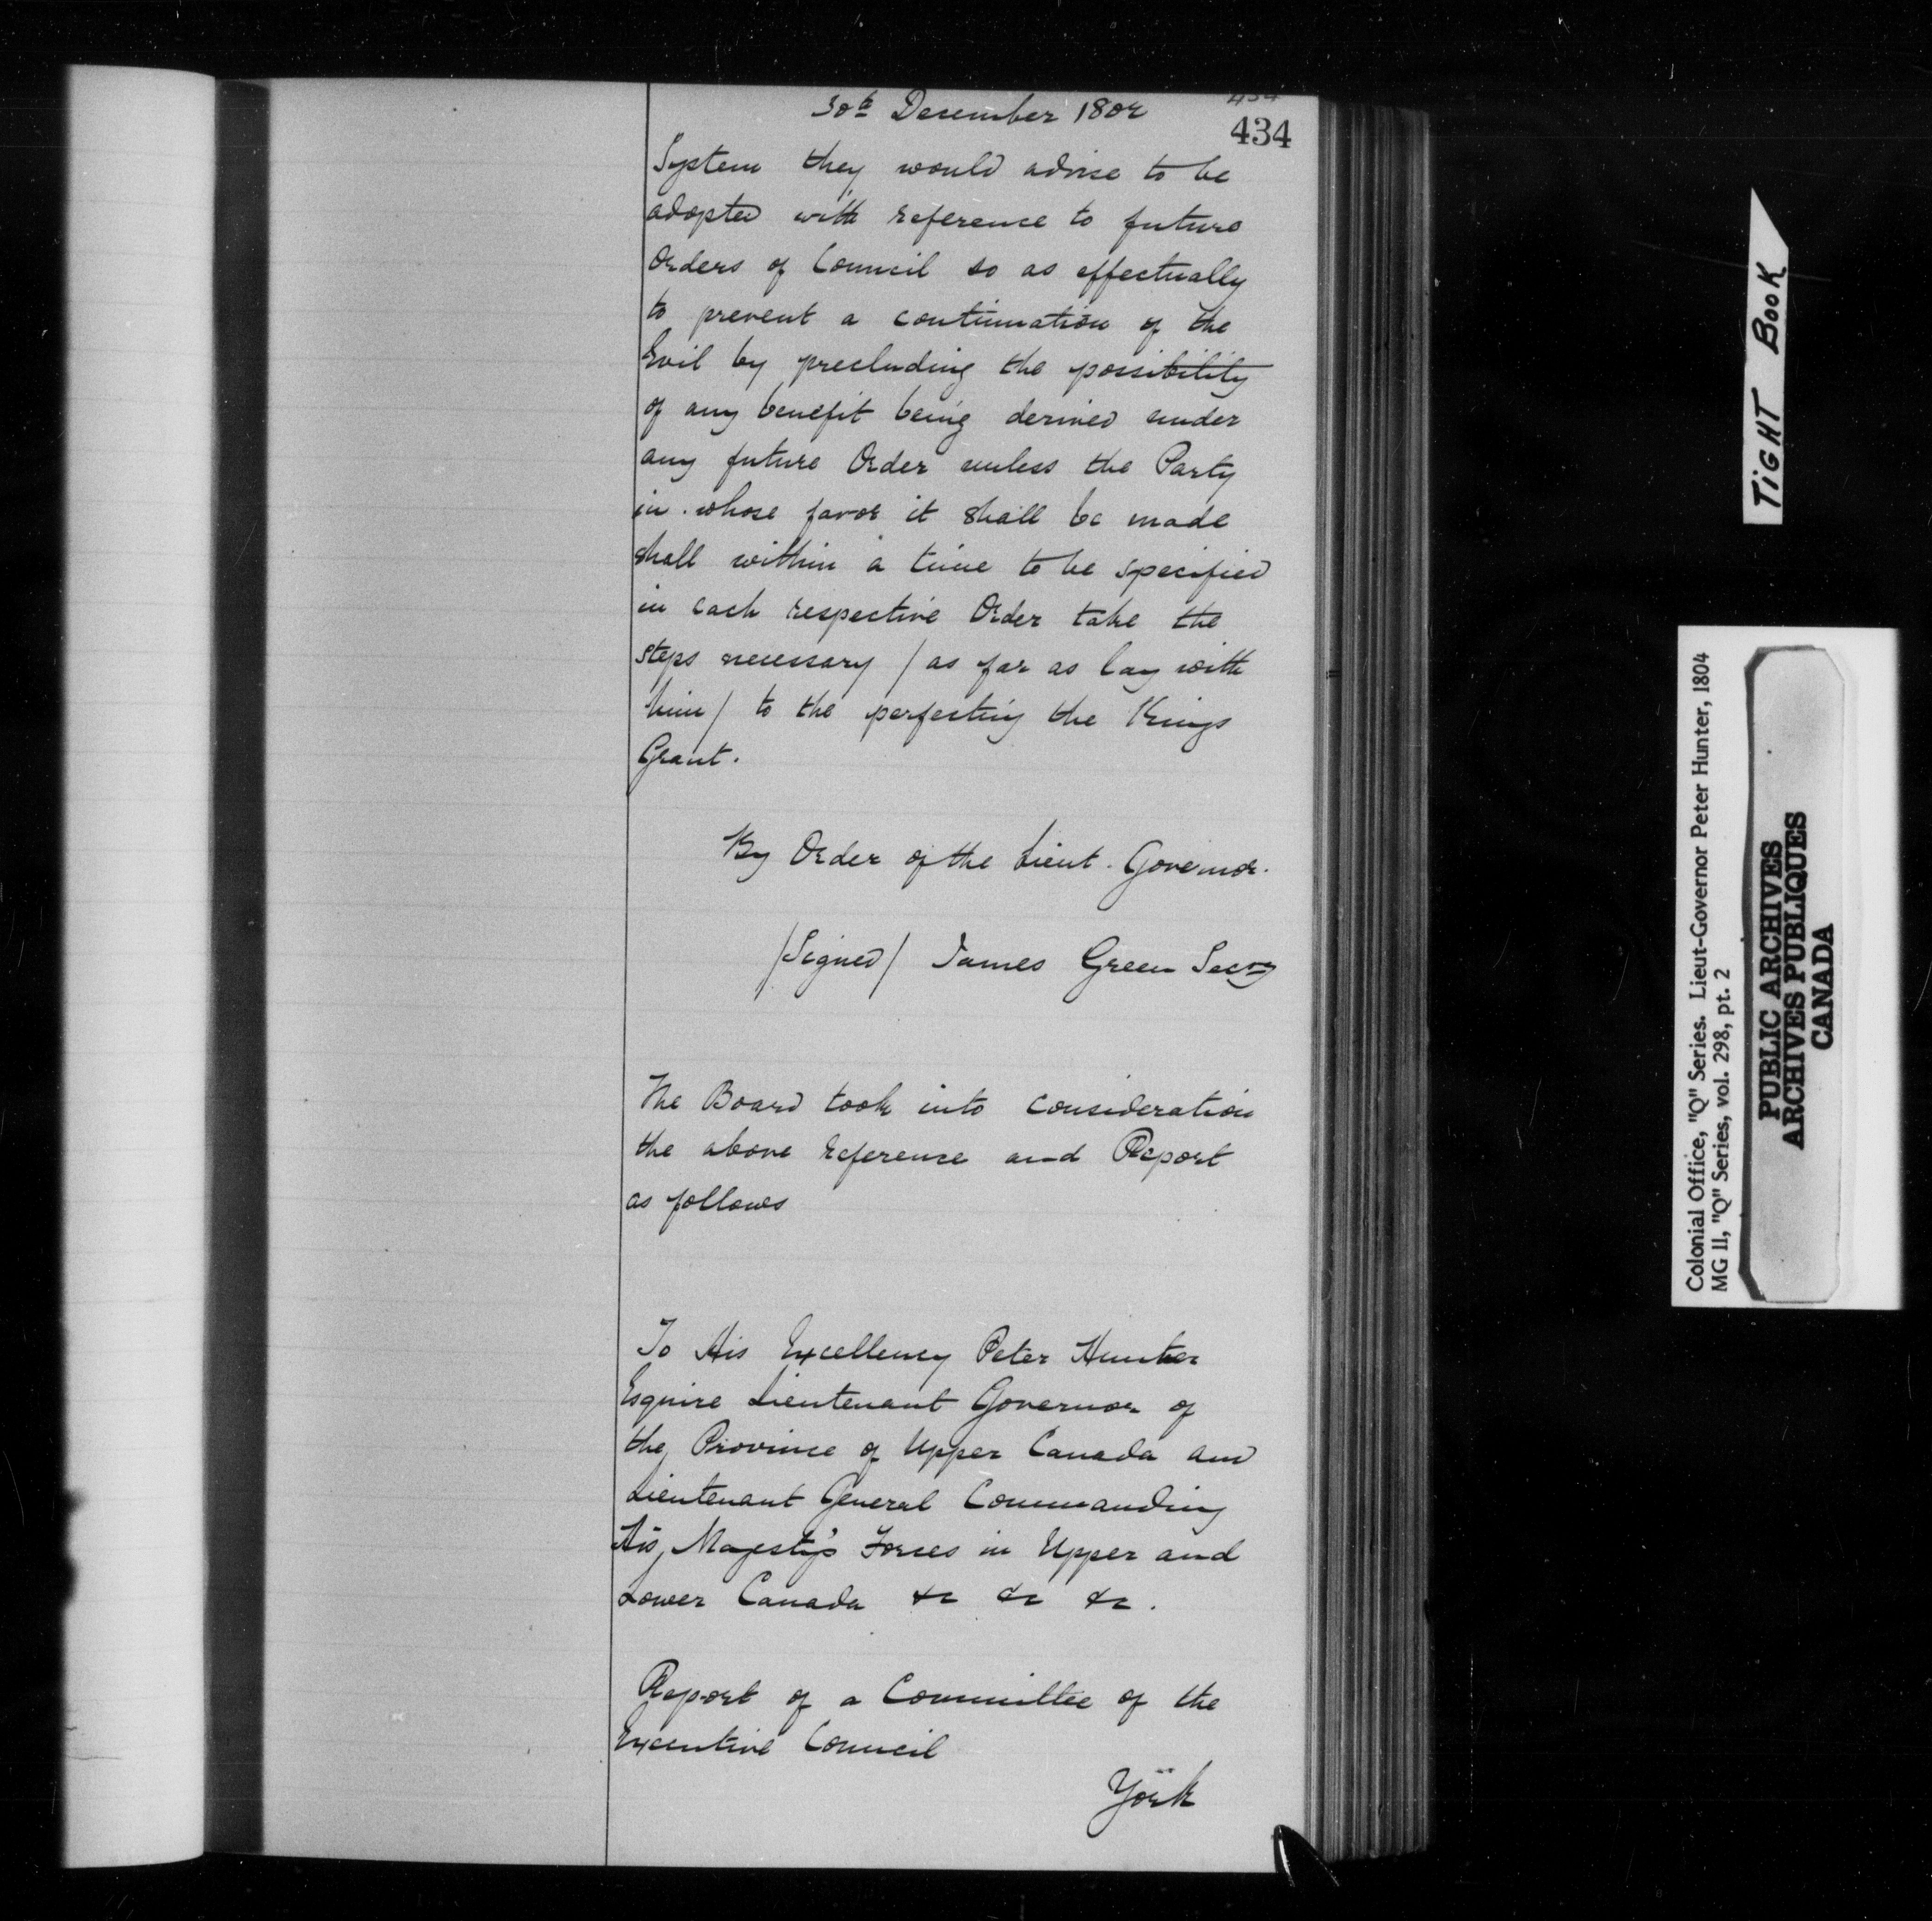 30th December 1802
434
System they would advise to be
adopted with reference to future
Orders of Council so as effectually
to prevent a continuation of the
Evil by precluding the possibility
of any benefit being derived under
any future Order unless the Party
in whose favor it shall be made
shall within a time to be specified
in each respective Order take the
steps necessary / as far as lay with
him / to the perfecting the Kings
Grant.
By Order of the Lieut. Governor.
/Signed/ James Green Secry
The Board took into consideration
the above reference and Report
as follows
To His Excellency Peter Hunter
Esquire Lieutenant Governor of
the Province of Upper Canada and
Lieutenant General Commanding
His Majesty's Forces in Upper and
Lower Canada &c &c &c.
Report of a Committee of the
Executive Council
York
TIGHT BOOK
Colonial Office, "Q" Series. Lieut-Governor Peter Hunter, 1804
MG 11, "Q" Series, vol. 298, pt. 2
PUBLIC ARCHIVES
ARCHIVES PUBLIQUES
CANADA